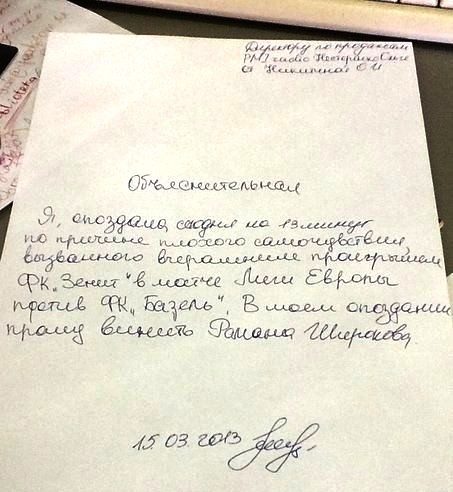 Директору по продажам
PMI radio Нестеренко Ольге
От Никитиной О И
Объяснительная
Я, опоздала сегодня на 13 минут
по причине плохого самочувствия,
вызванного вчерашним проигрышем
ФК „Зенит“ в матче Лиги Европы
против ФК „Базель“. В моем опоздании
прошу винить Романа Широкова
15.03.2013